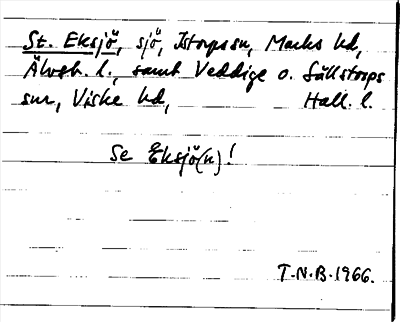 St. Eksjö, sjö, Istorps sn, Marks hd,
Älvsb. l., samt Veddige o. Sällstorps
snr, Viske hd, Hall. l.
Se Eksjö(n)!
T.N.B. 1966.